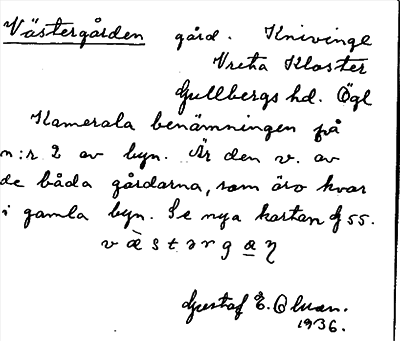 Västergården gård. Knivinge
Vreta Kloster
Gullbergs hd. Ögl
Kamerala benämningen på
n:r 2 av byn. Är den v. av
de båda gårdarna, som äro kvar
i gamla byn. Se nya kartan G 55.
v æ̀ s t ə r g æ̲ η
Gustaf E.
1936.